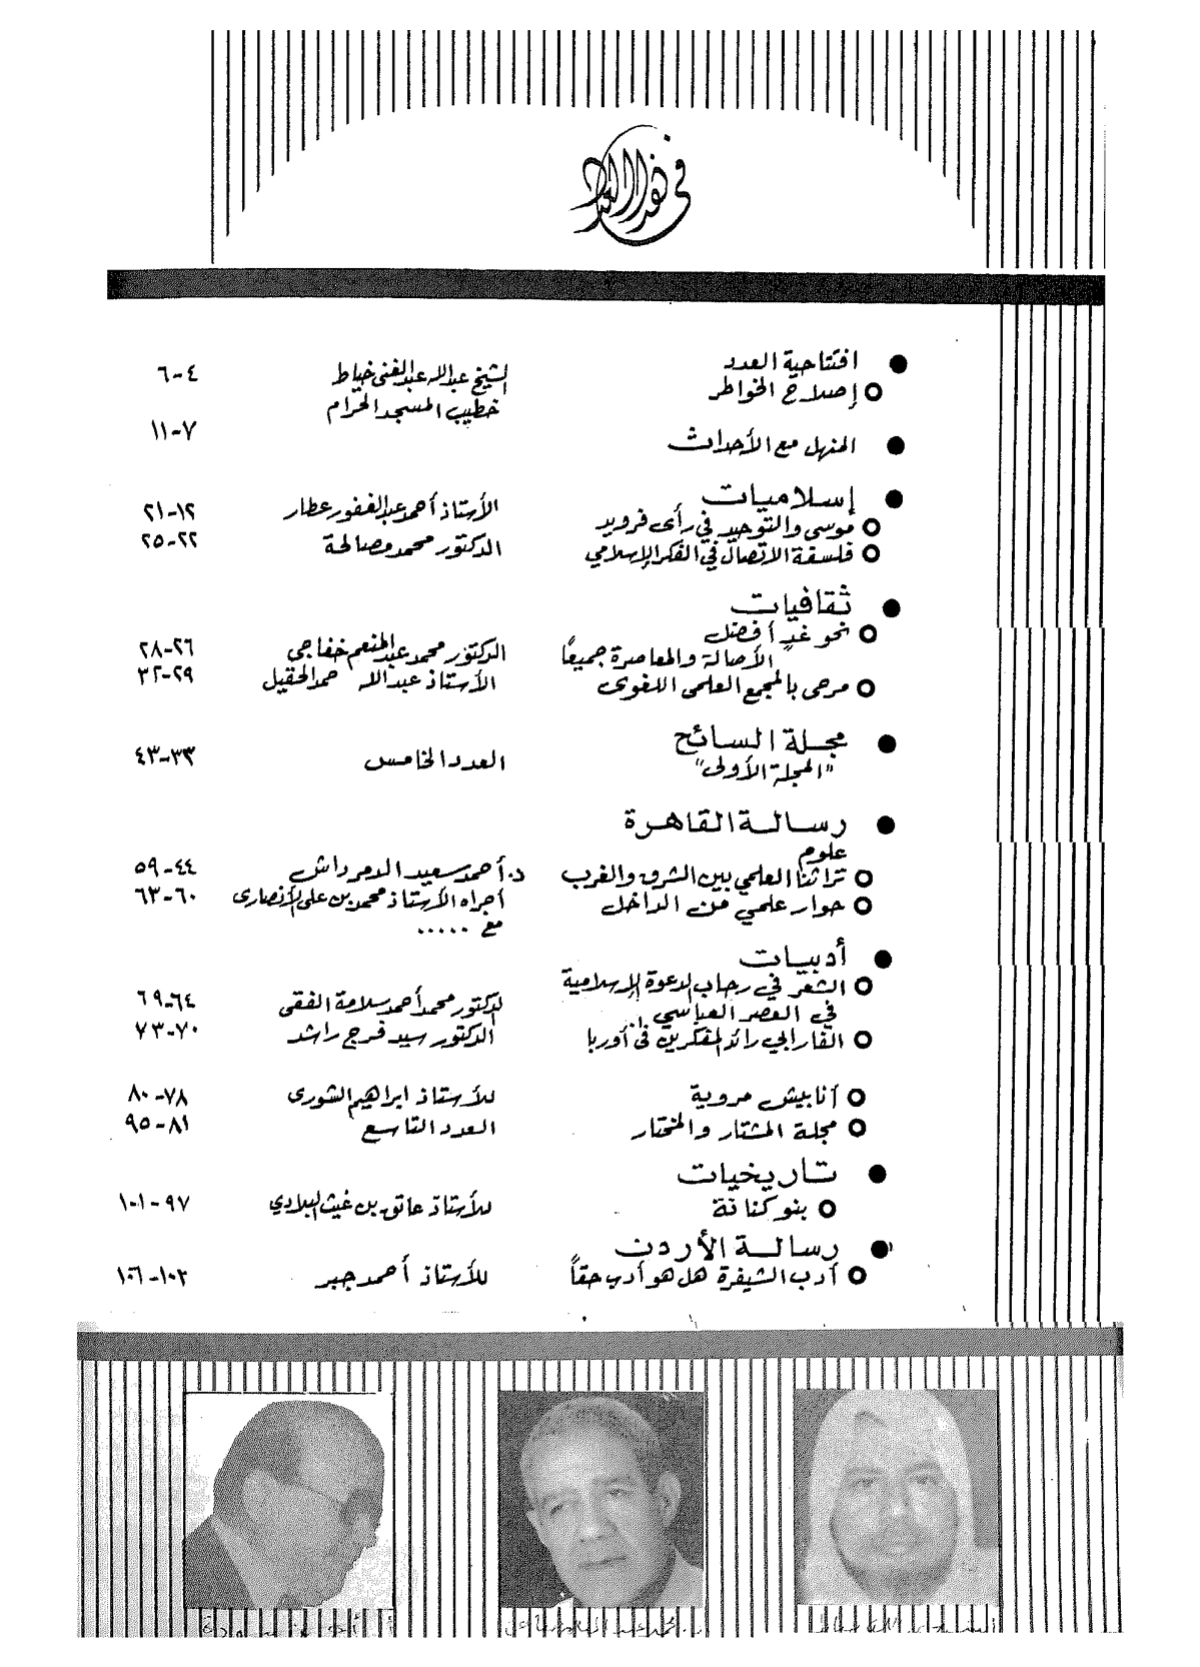 في هذا العدد
● افتتاحية العدد
○ إصلاح الخواطر الشيخ عبدالله عبدالغنى خياط ٤-٦
خطيب المسجد الحرام
● المنهل مع الأحداث ٧-١١
● إسلاميات
○ موسى والتوحيد في رأى فرويد الأستاذ أحمد عبدالغفور عطار ١٢-٢١
○ فلسفة الاتصال في الفكر الإسلامي الدكتور محمد مصالحة ٢٢-٢٥
● ثقافيات
○ نحو غدٍ أفضل
الأصالة والمعاصرة جميعًا الدكتور محمد عبدالمنعم خفاجى ٢٦-٢٨
○ مرحى بالمجمع العلمى اللغوى الأستاذ عبدالله حمد الحقيل ٢٩-٣٢
● مجلة السائح
"المجلة الأولى" العدد الخامس ٣٣-٤٣
● رسالة القاهرة
علوم
○ تراثنا العلمي بين الشرق والغرب د. أحمد سعيد الدمرداش ٤٤-٥٩
○ حوار علمي من الداخل أجراه الأستاذ محمد بن على الأنصارى ٦٠-٦٣
مع .....
● أدبيات
○ الشعر في رحاب الدعوة الإسلامية
في العصر العباسي الدكتور محمد أحمد سلامة الفقى ٦٤-٦٩
○ الفارابي رائد المفكرين فى أوربا الدكتور سيد فرج راشد ٧٠-٧٣
○ أنابيش مروية للأستاذ ابراهيم الشورى ٧٨-٨٠
○ مجلة المشتار والمختار العدد التاسع ٨١-٩٥
● تاريخيات
○ بنو كنانة للأستاذ عاتق بن غيث البلادي ٩٧-١٠١
● رسالة الأردن
○ أدب الشيفرة هل هو أدب حقاً للأستاذ أحمد جبر ١٠٢-١٠٦